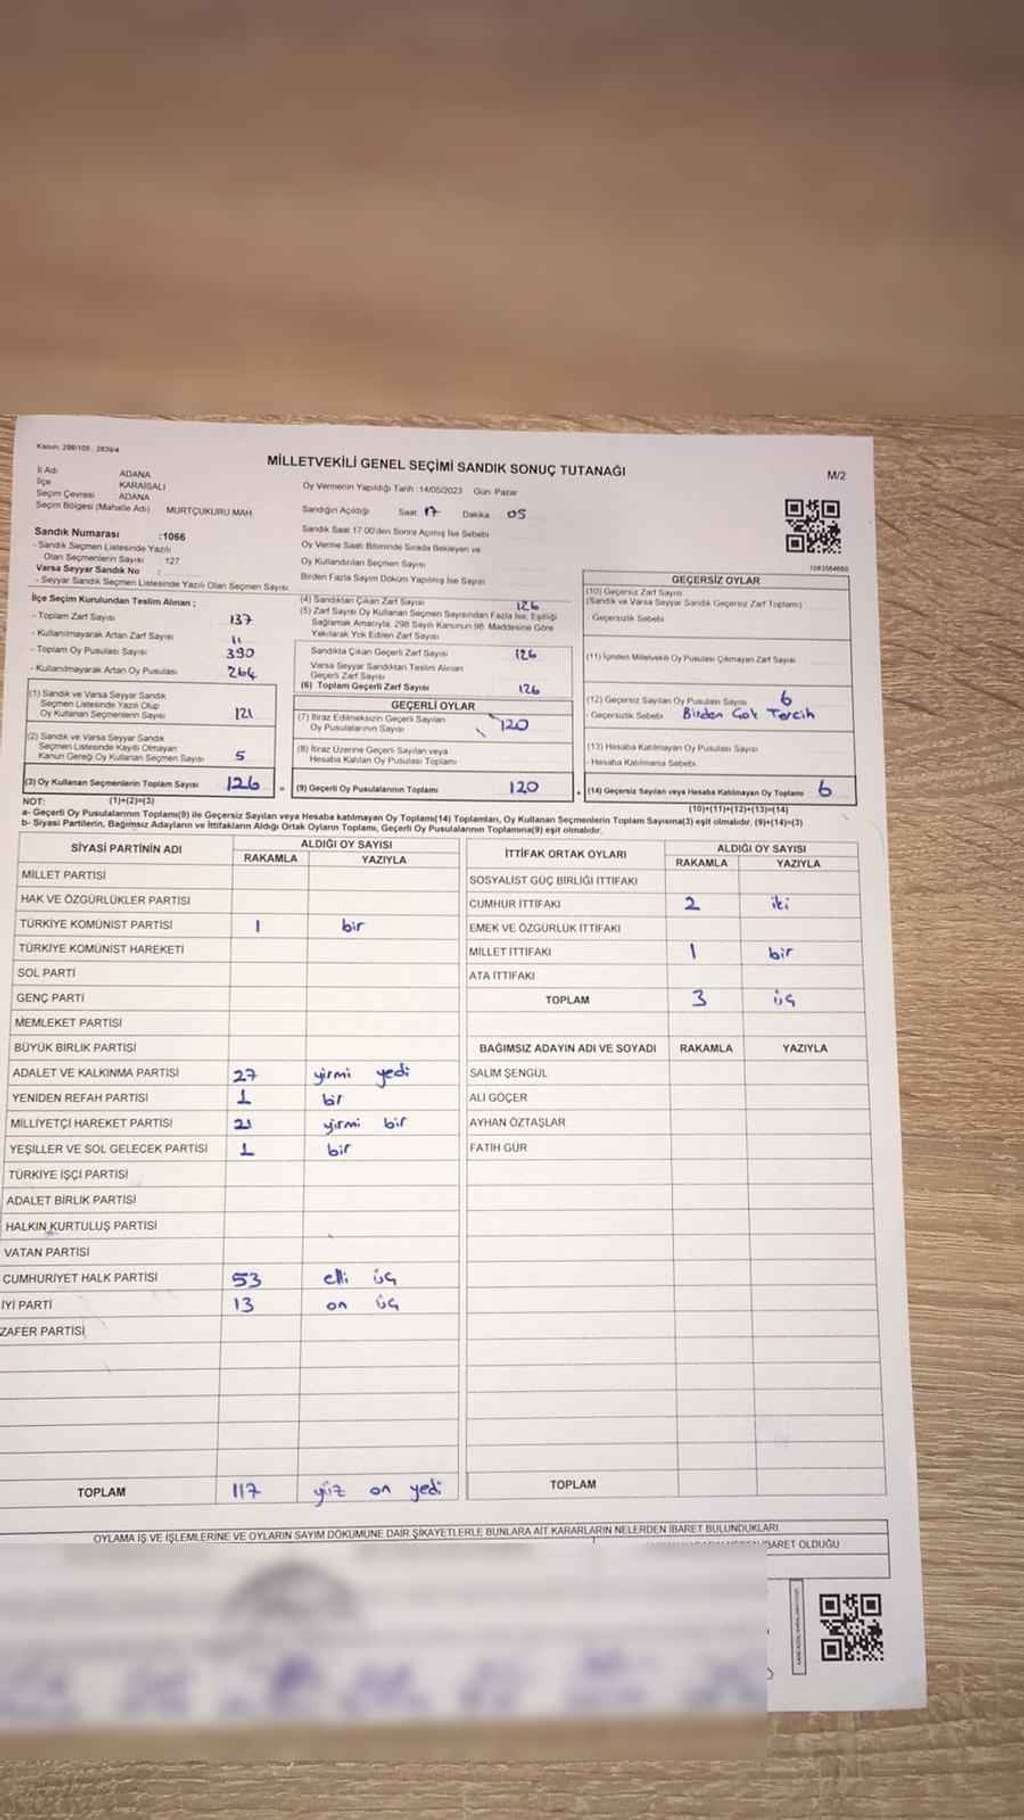 Kanun: 298/105 , 2839/4
MİLLETVEKİLİ GENEL SEÇİMİ SANDIK SONUÇ TUTANAĞI
M/2
İl Adı ADANA
İlçe KARAİSALI
Seçim Çevresi ADANA
Seçim Bölgesi (Mahalle Adı) MURTÇUKURU MAH
Oy Vermenin Yapıldığı Tarih :14/05/2023 Gün: Pazar
Sandığın Açıldığı Saat 17 Dakika 05
Sandık Saat 17:00'den Sonra Açılmış İse Sebebi
Oy Verme Saati Bitiminde Sırada Bekleyen ve
Oy Kullandırılan Seçmen Sayısı
Birden Fazla Sayım Döküm Yapılmış İse Sayısı
Sandık Numarası :1066
- Sandık Seçmen Listesinde Yazılı
Olan Seçmenlerin Sayısı : 127
Varsa Seyyar Sandık No :
- Seyyar Sandık Seçmen Listesinde Yazılı Olan Seçmen Sayısı:
İlçe Seçim Kurulundan Teslim Alınan ;
- Toplam Zarf Sayısı 137
- Kullanılmayarak Artan Zarf Sayısı 11
- Toplam Oy Pusulası Sayısı 390
- Kullanılmayarak Artan Oy Pusulası 264
(1) Sandık ve Varsa Seyyar Sandık
Seçmen Listesinde Yazılı Olup
Oy Kullanan Seçmenlerin Sayısı 121
(2) Sandık ve Varsa Seyyar Sandık
Seçmen Listesinde Kayıtlı Olmayan
Kanun Gereği Oy Kullanan Seçmen Sayısı 5
(3) Oy Kullanan Seçmenlerin Toplam Sayısı 126
(1)+(2)=(3)
(4) Sandıktan Çıkan Zarf Sayısı 126
(5) Zarf Sayısı Oy Kullanan Seçmen Sayısından Fazla İse, Eşitliği
Sağlamak Amacıyla, 298 Sayılı Kanunun 98. Maddesine Göre
Yakılarak Yok Edilen Zarf Sayısı
Sandıkta Çıkan Geçerli Zarf Sayısı 126
Varsa Seyyar Sandıktan Teslim Alınan
Geçerli Zarf Sayısı
(6) Toplam Geçerli Zarf Sayısı 126
GEÇERLİ OYLAR
(7) İtiraz Edilmeksizin Geçerli Sayılan
Oy Pusulalarının Sayısı 120
(8) İtiraz Üzerine Geçerli Sayılan veya
Hesaba Katılan Oy Pusulası Toplamı
= (9) Geçerli Oy Pusulalarının Toplamı 120
GEÇERSİZ OYLAR
(10) Geçersiz Zarf Sayısı
(Sandık ve Varsa Seyyar Sandık Geçersiz Zarf Toplamı)
- Geçersizlik Sebebi
(11) İçinden Milletvekili Oy Pusulası Çıkmayan Zarf Sayısı
(12) Geçersiz Sayılan Oy Pusulası Sayısı 6
- Geçersizlik Sebebi Birden Çok Tercih
(13) Hesaba Katılmayan Oy Pusulası Sayısı
- Hesaba Katılmama Sebebi
+ (14) Geçersiz Sayılan veya Hesaba Katılmayan Oy Toplamı 6
(10)+(11)+(12)+(13)=(14)
NOT:
a- Geçerli Oy Pusulalarının Toplamı(9) ile Geçersiz Sayılan veya Hesaba katılmayan Oy Toplamı(14) Toplamları, Oy Kullanan Seçmenlerin Toplam Sayısına(3) eşit olmalıdır. (9)+(14)=(3)
b- Siyasi Partilerin, Bağımsız Adayların ve İttifakların Aldığı Ortak Oyların Toplamı, Geçerli Oy Pusulalarının Toplamına(9) eşit olmalıdır.
SİYASİ PARTİNİN ADI ALDIĞI OY SAYISI
RAKAMLA YAZIYLA
MİLLET PARTİSİ
HAK VE ÖZGÜRLÜKLER PARTİSİ
TÜRKİYE KOMÜNİST PARTİSİ 1 bir
TÜRKİYE KOMÜNİST HAREKETİ
SOL PARTİ
GENÇ PARTİ
MEMLEKET PARTİSİ
BÜYÜK BİRLİK PARTİSİ
ADALET VE KALKINMA PARTİSİ 27 yirmi yedi
YENİDEN REFAH PARTİSİ 1 bir
MİLLİYETÇİ HAREKET PARTİSİ 21 yirmi bir
YEŞİLLER VE SOL GELECEK PARTİSİ 1 bir
TÜRKİYE İŞÇİ PARTİSİ
ADALET BİRLİK PARTİSİ
HALKIN KURTULUŞ PARTİSİ
VATAN PARTİSİ
CUMHURİYET HALK PARTİSİ 53 elli üç
İYİ PARTİ 13 on üç
ZAFER PARTİSİ
TOPLAM 117 yüz on yedi
İTTİFAK ORTAK OYLARI ALDIĞI OY SAYISI
RAKAMLA YAZIYLA
SOSYALİST GÜÇ BİRLİĞİ İTTİFAKI
CUMHUR İTTİFAKI 2 iki
EMEK VE ÖZGÜRLÜK İTTİFAKI
MİLLET İTTİFAKI 1 bir
ATA İTTİFAKI
TOPLAM 3 üç
BAĞIMSIZ ADAYIN ADI VE SOYADI RAKAMLA YAZIYLA
SALİM ŞENGÜL
ALİ GÖÇER
AYHAN ÖZTAŞLAR
FATİH GÜR
TOPLAM
OYLAMA İŞ VE İŞLEMLERİNE VE OYLARIN SAYIM DÖKÜMÜNE DAİR ŞİKAYETLERLE BUNLARA AİT KARARLARIN NELERDEN İBARET BULUNDUKLARI
OLDUĞU